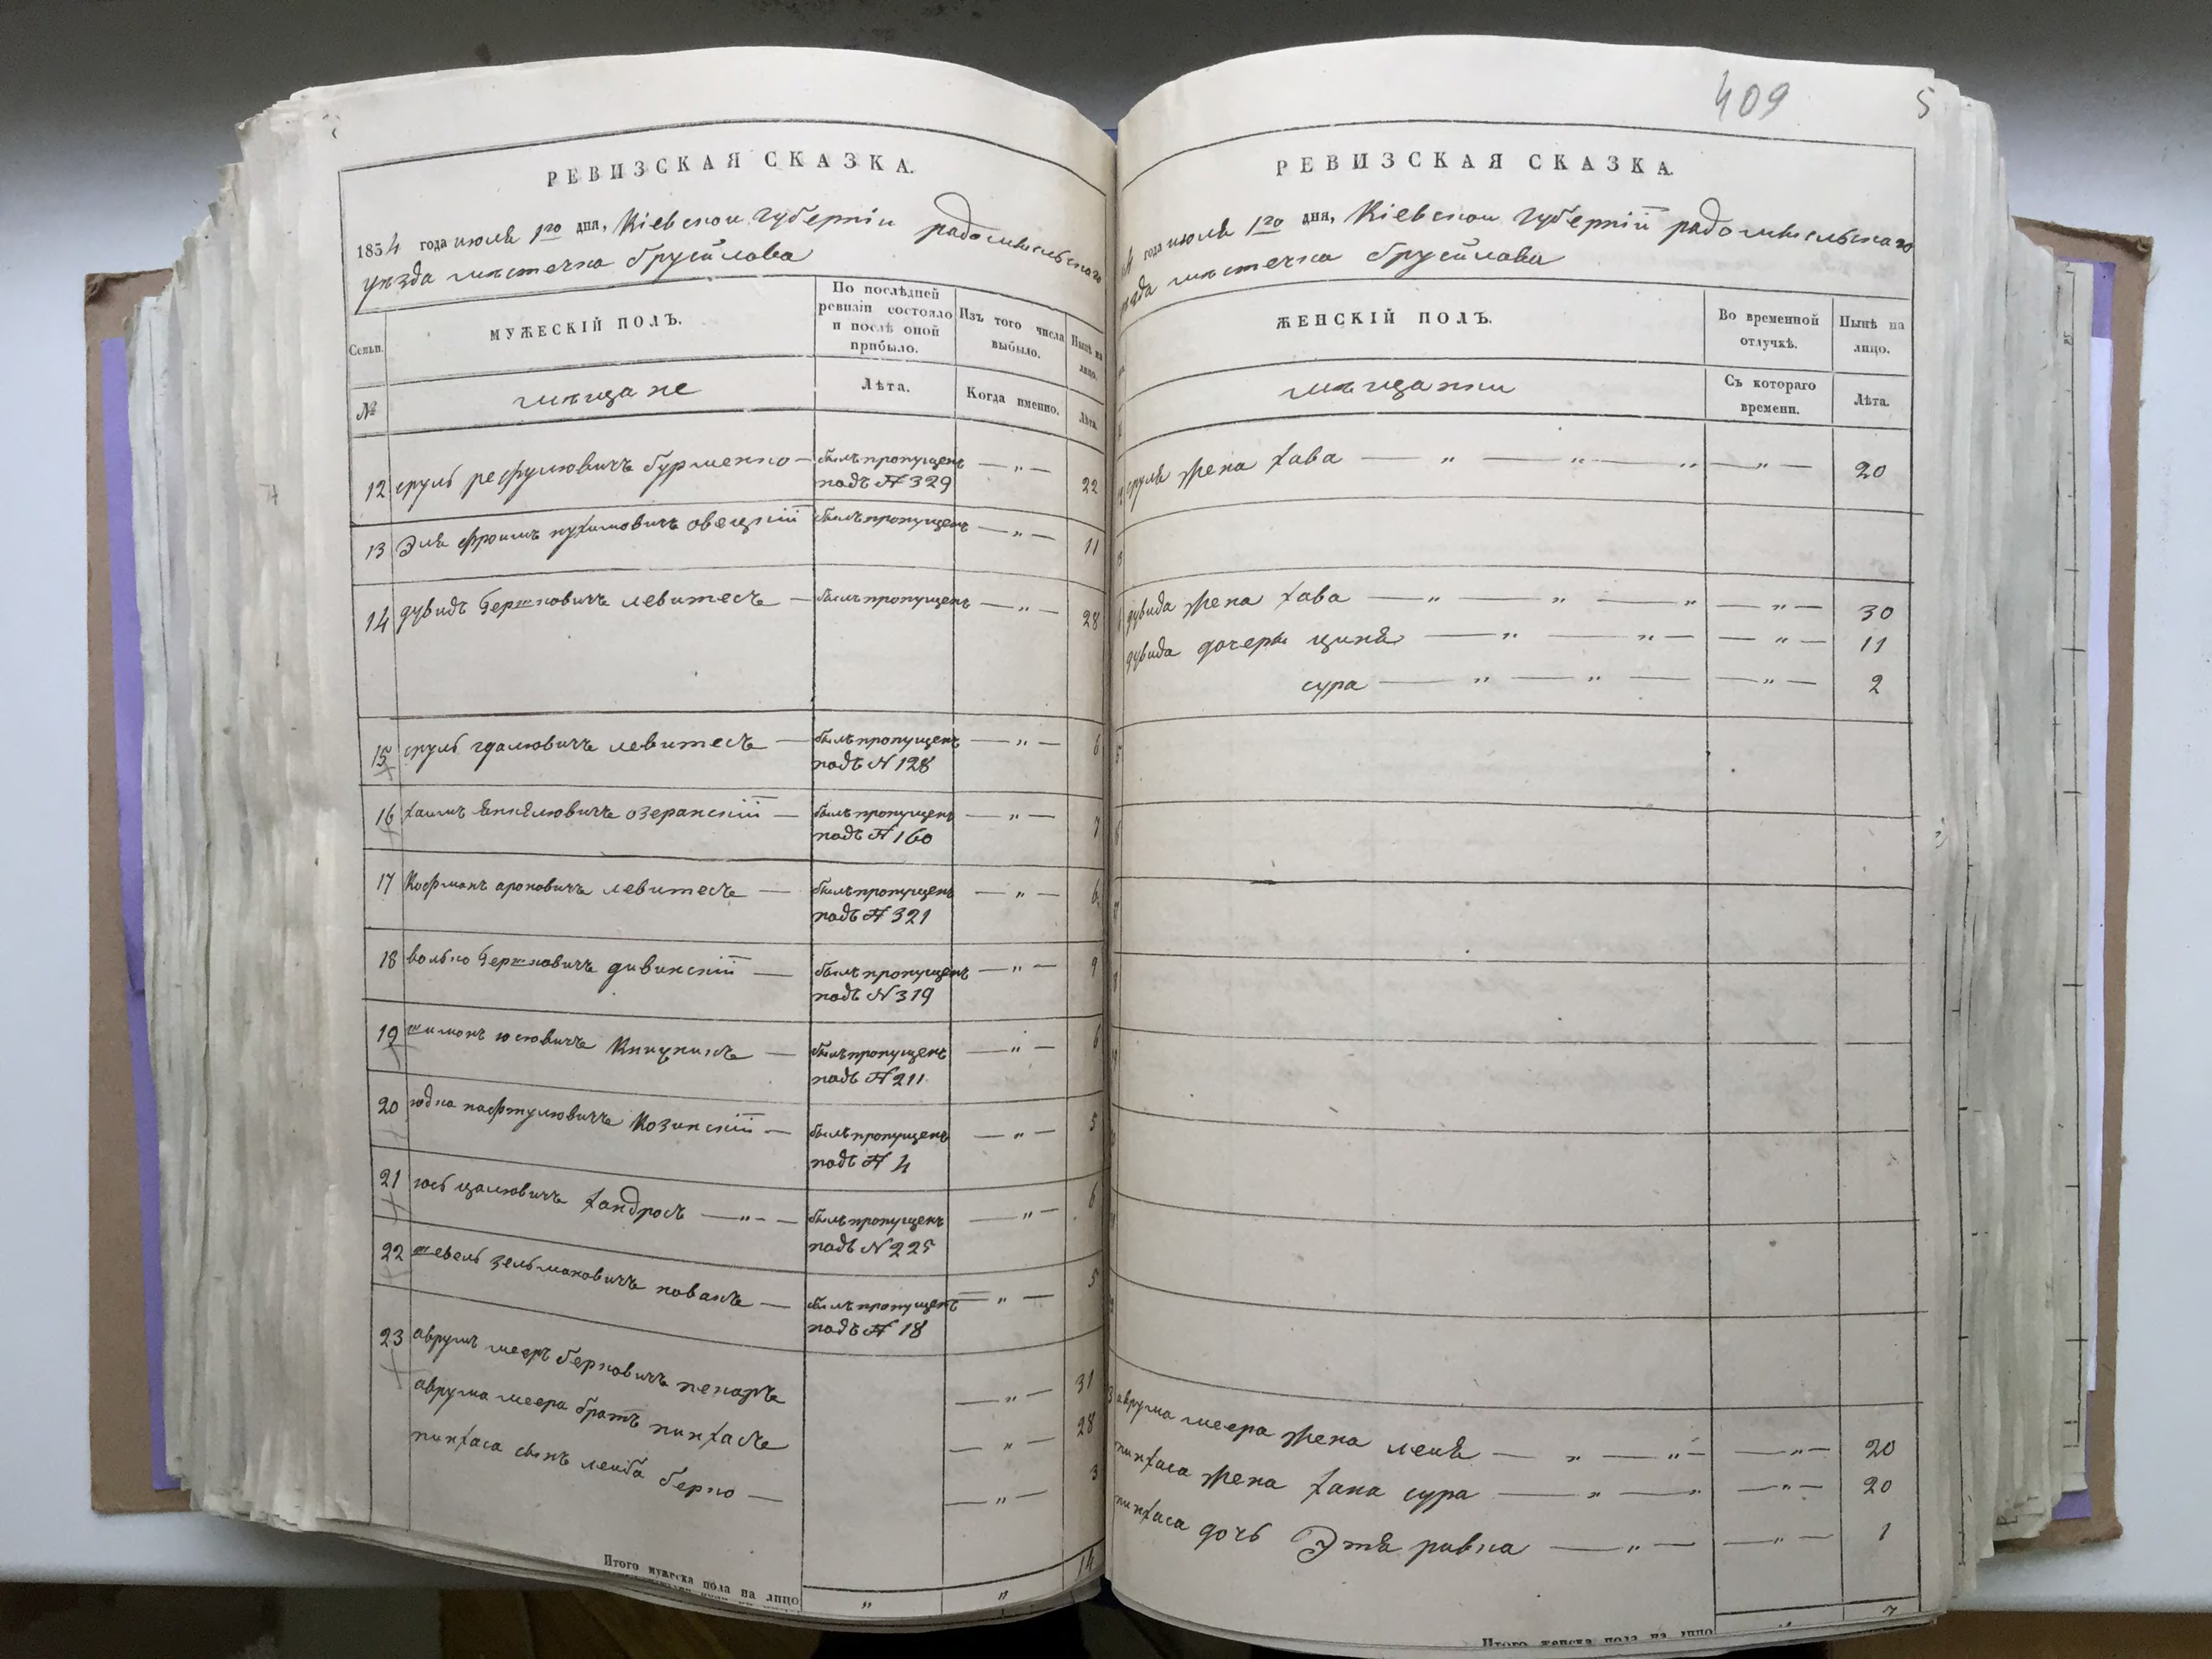 409
5
РЕВИЗСКАЯ СКАЗКА.
1854 года июля 1го дня, Кіевской губерніи радомысльскаго
уезда местечка брусилова
Сельп.
МУЖЕСКІЙ ПОЛЪ.
По послѣдней ревизіи состояло и послѣ оной прибыло.
Изъ того числа выбыло.
Нынѣ на лицо.
№
мещане
Лѣта.
Когда именно.
Лѣта.
12 сруль рефулювичъ бурменко — былъ пропущенъ — „ — 22
подъ № 329
13 Эля фроимъ нухимовичъ овецкій былъ пропущенъ — „ — 11
14 дувидъ Гершковичъ левитесъ — былъ пропущенъ — „ — 28
15 сруль гдалювичъ левитесъ — былъ пропущенъ — „ — 6
подъ № 128
16 хаимъ янкелювичъ озеранскій — былъ пропущенъ — „ — 7
подъ № 160
17 Кофманъ ароновичъ левитесъ — былъ пропущенъ — „ — 6
подъ № 321
18 волько Гершковичъ дивинскій — былъ пропущенъ — „ — 9
подъ № 319
19 шимонъ юсювичъ — былъ пропущенъ — „ — 6
подъ № 211
20 юдка нафтулювичъ Козинскій — былъ пропущенъ — „ — 5
подъ № 4
21 юсь цалювичъ хандросъ — „ — былъ пропущенъ — „ — 6
подъ № 225
22 шевель зельмановичъ — былъ пропущенъ — „ — 5
подъ № 18
23 аврумъ мееръ берковичъ пекарь — „ — 31
аврума меера братъ пинхасъ — „ — 28
пинхаса сынъ лейба берко — — „ — 3
Итого мужеска пола на лицо „ „ 14
РЕВИЗСКАЯ СКАЗКА.
4 года июля 1го дня, Кіевской губерніи радомысльскаго
уезда местечка брусилова
ЖЕНСКІЙ ПОЛЪ.
Во временной отлучкѣ.
Нынѣ на лицо.
мещанки
Съ котораго времени.
Лѣта.
сруля жена хава — „ — „ — „ — „ — 20
дувида жена хава — „ — „ — „ — „ — 30
дувида дочери циня — „ — „ — — „ — 11
сура — „ — „ — — „ — 2
аврума меера жена леня — „ — „ — — „ — 20
пинхаса жена хана сура — „ — „ — „ — 20
пинхаса дочь Этя ривка — „ — — „ — 1
Итого женска пола на лицо „ 7